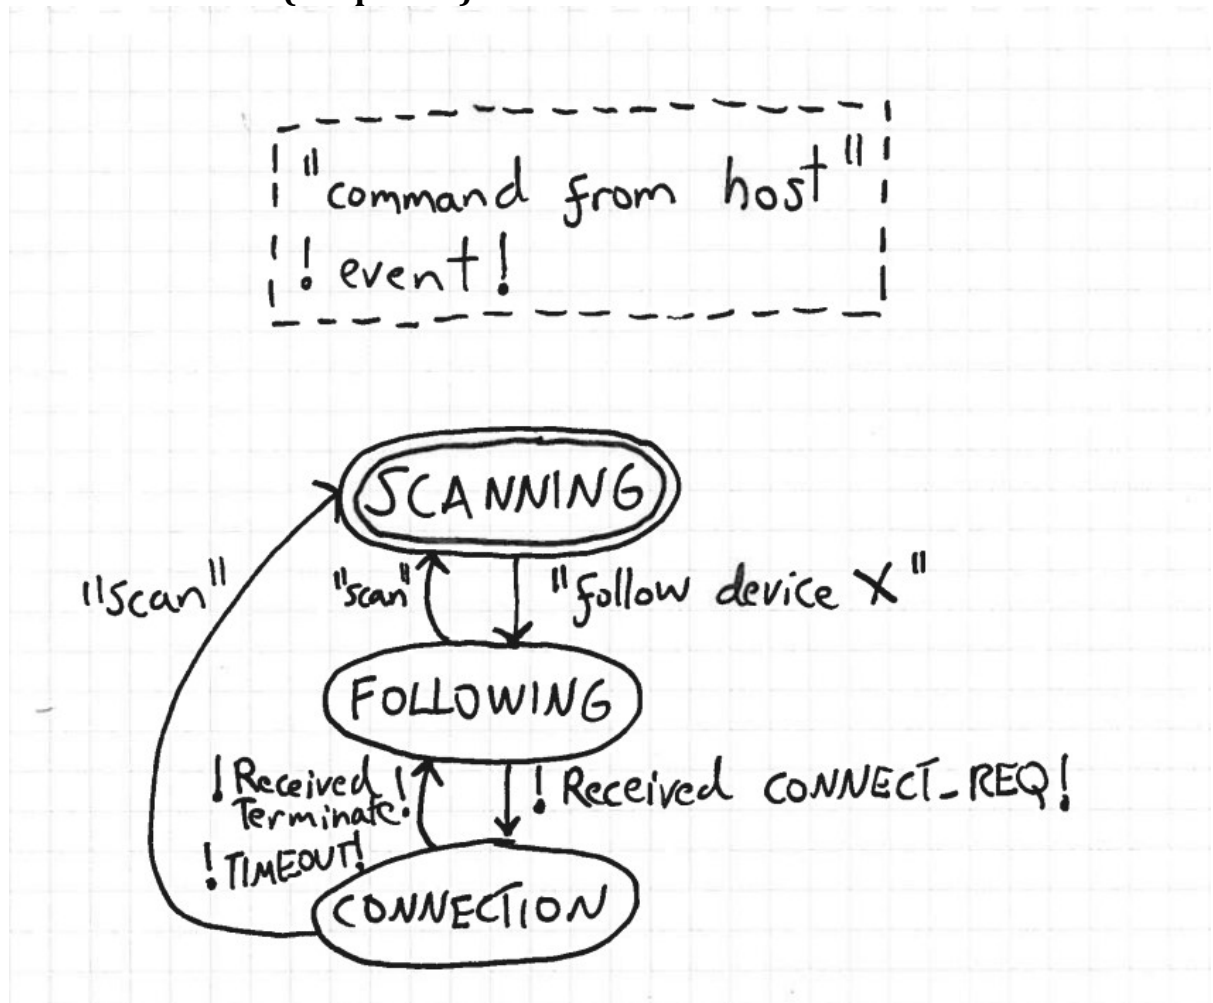 "command from host"
! event!
SCANNING
"Scan"
"scan"
"follow device X"
FOLLOWING
! Received
Terminate!
! TIMEOUT!
! Received CONNECT_REQ!
CONNECTION